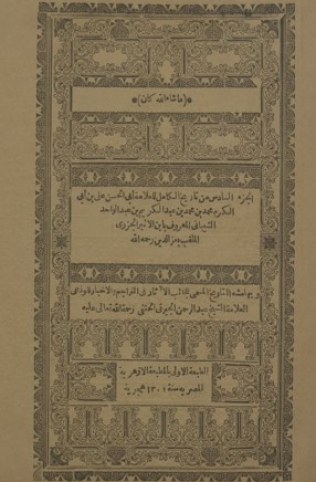 *(ماشاء الله كان)*
الجزء السادس من تاريخ الكامل للعلامة أبي الحسن علي بن أبي
الكرم محمد بن محمد بن عبد الكريم بن عبد الواحد
الشيباني المعروف بابن الاثير الجزري
الملقب بعز الدين رحمه الله
وبهامشه التاريخ المسمى عجائب الآثار في التراجم والاخبار لاوحد
العلامة الشيخ عبد الرحمن الجبرتي الحنفي رحمه الله تعالى عليه
الطبعة الاولى بالمطبعة الازهرية
المصرية سنة ١٣٠١ هجرية